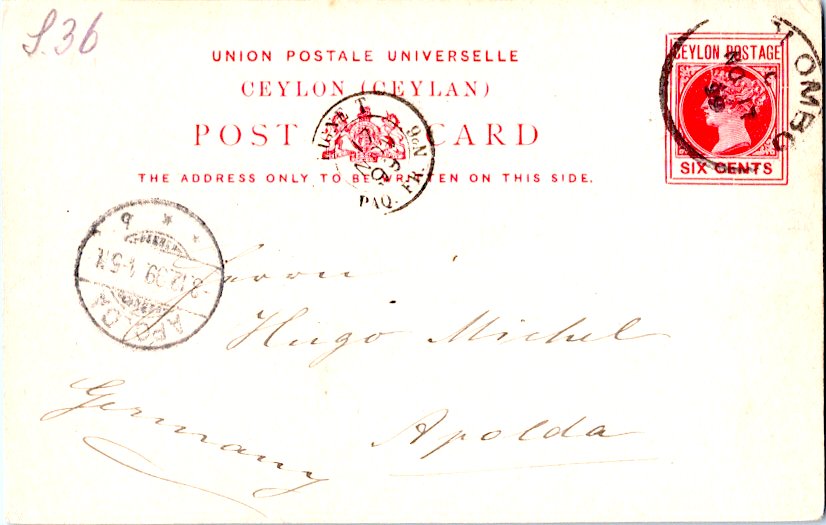 S.36
UNION POSTALE UNIVERSELLE
CEYLON (CEYLAN)
POST CARD
THE ADDRESS ONLY TO BE WRITTEN ON THIS SIDE.
CEYLON POSTAGE
SIX CENTS
OMBO
LIGNE T
PAQ. FR. Nº6
APOLDA
3.12.99. 4-5 N.
* b *
Herrn
Hugo Michel
Apolda
Germany